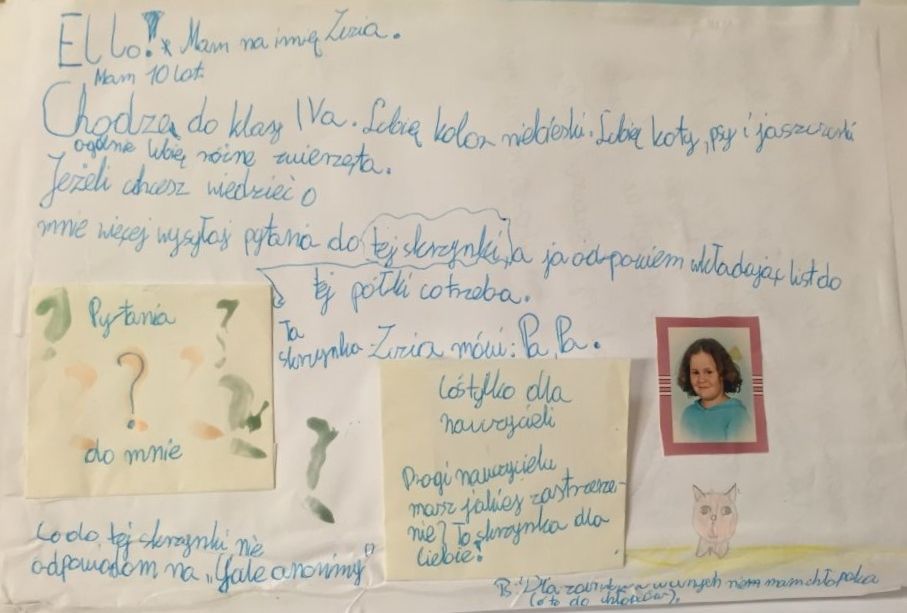 Ello! * Mam na imię Zuzia.
Mam 10 lat.
Chodzą do klasy IVa. Lubię kolor niebieski. Lubię koty, psy i jaszczurki
ogólnie lubię różne zwierzęta.
Jeżeli chcesz wiedzieć o
mnie więcej wysyłaj pytania do tej skrzynki, a ja odpowiem wkładając list do
tej półki co trzeba.
Ta
skrzynka
Zuzia mówi: Pa, Pa.
Pytania
?
do mnie
Cośtylko dla
nauczycieli
Drogi nauczycielu
masz jakieś zastrzeże-
nie? To skrzynka dla
Ciebie!
Co do tej skrzynki nie
odpowiadam na „Gale anonimy"
Dla mam chłopaka
(o to do chłopców).